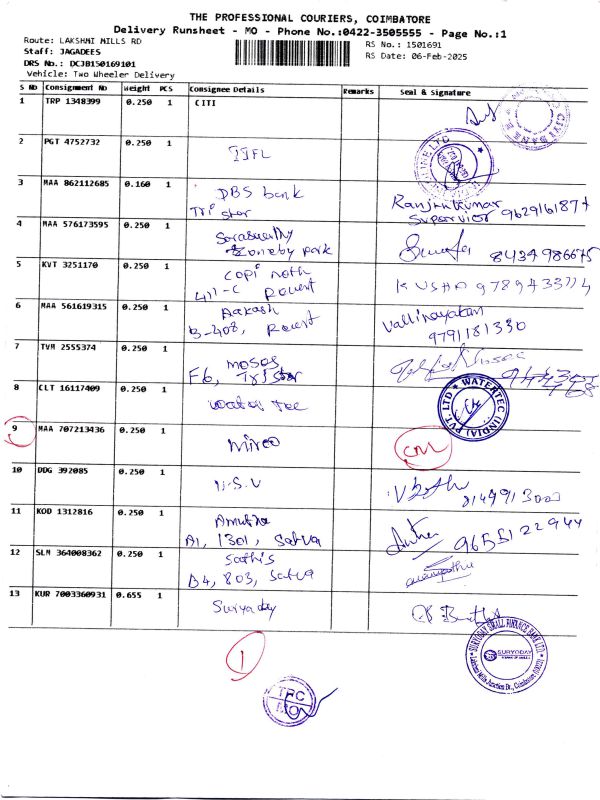 THE PROFESSIONAL COURIERS, COIMBATORE
Delivery Runsheet - MO - Phone No.:0422-3505555 - Page No.:1
Route: LAKSHMI MILLS RD
RS No.: 1501691
Staff: JAGADEES
RS Date: 06-Feb-2025
DRS No.: DCJB150169101
Vehicle: Two Wheeler Delivery
S No Consignment No Weight PCS Consignee Details Remarks Seal & Signature
1 TRP 1348399 0.250 1 CITI
2 PGT 4752732 0.250 1 IIFL
3 MAA 862112685 0.160 1 DBS bank
Tri star
Ranjithkumar
Supervisor 9629161874
4 MAA 576173595 0.250 1
park
8434986675
5 KVT 3251170 0.250 1 Copi nath
411-C
KUSHA
6 MAA 561619315 0.250 1 Aakash
B-408,
Vallinayakan
9791181330
7 TVM 2555374 0.250 1 moses
F6, Tristar
8 CLT 16117409 0.250 1 water Tec
WATERTEC (INDIA) PVT. LTD
9 MAA 707213436 0.250 1
10 DDG 392085 0.250 1 U.S.V
11 KOD 1312816 0.250 1 Amutha
A1, 1301, Satva
9655122944
12 SLM 364008362 0.250 1 Sathis
B4, 803, Satva
13 KUR 7003360931 0.655 1 Suryoday
SURYODAY SMALL FINANCE BANK LTD.
SURYODAY
Lakshmi Mills Junction Br., Coimbatore
1
TPC
MO